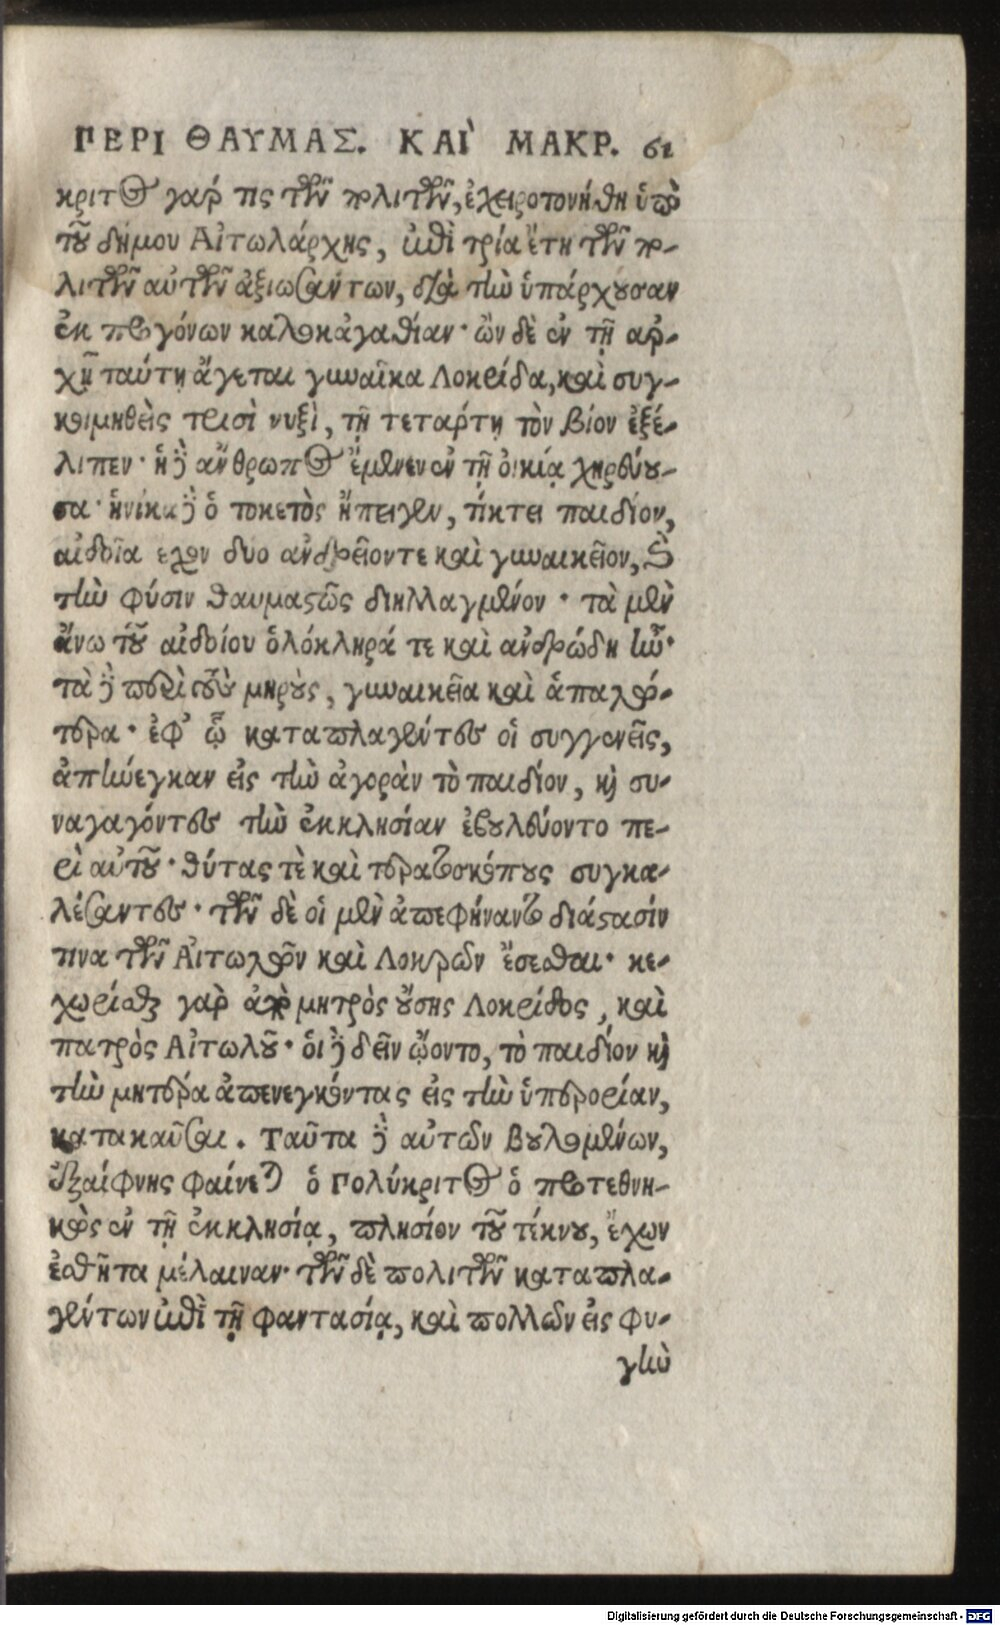 ΠΕΡΙ ΘΑΥΜΑΣ. ΚΑΙ ΜΑΚΡ. 61
κριτος γάρ τις τῶν πολιτῶν, ἐχειροτονήθη ὑπὸ
τοῦ δήμου Αἰτωλάρχης, ἐπὶ τρία ἔτη τῶν πο-
λιτῶν αὐτῶν ἀξιωσάντων, διὰ τὴν ὑπάρχουσαν
ἐκ προγόνων καλοκἀγαθίαν· ὢν δὲ ἐν τῇ ἀρ-
χῇ ταύτῃ ἄγεται γυναῖκα Λοκρίδα, καὶ συγ-
κοιμηθεὶς τρισὶ νυξὶ, τῇ τετάρτῃ τὸν βίον ἐξέ-
λιπεν· ἡ δὲ ἄνθρωπος ἔμενεν ἐν τῇ οἰκίᾳ χηρεύου-
σα· ἡνίκα δὲ ὁ τοκετὸς ἤπειγεν, τίκτει παιδίον,
αἰδοῖα ἔχον δυο ἀνδρεῖόντε καὶ γυναικεῖον, καὶ
τὴν φύσιν θαυμαστῶς διηλλαγμένον· τὰ μὲν
ἄνω τοῦ αἰδοίου ὁλόκληρά τε καὶ ἀνδρώδη ἦν·
τὰ δὲ περὶ τοὺς μηροὺς, γυναικεῖα καὶ ἁπαλώ-
τερα· ἐφ' ᾧ καταπλαγέντες οἱ συγγενεῖς,
ἀπήνεγκαν εἰς τὴν ἀγορὰν τὸ παιδίον, καὶ συ-
ναγαγόντες τὴν ἐκκλησίαν ἐβουλεύοντο πε-
ρὶ αὐτοῦ· θύτας τὲ καὶ τερατοσκόπους συγκα-
λέσαντες· τῶν δὲ οἱ μὲν ἀπεφήναντο διάστασίν
τινα τῶν Αἰτωλῶν καὶ Λοκρῶν ἔσεσθαι· κε-
χωρίσθαι γὰρ ἀπὸ μητρὸς οὔσης Λοκρίδος, καὶ
πατρὸς Αἰτωλοῦ· οἱ δὲ δεῖν ᾤοντο, τὸ παιδίον καὶ
τὴν μητέρα ἀπενεγκόντας εἰς τὴν ὑπερορίαν,
κατακαῦσαι. Ταῦτα δὲ αὐτῶν βουλομένων,
ἐξαίφνης φαίνεται ὁ Πολύκριτος ὁ προτεθνη-
κὼς ἐν τῇ ἐκκλησίᾳ, πλησίον τοῦ τέκνου, ἔχων
ἐσθῆτα μέλαιναν· τῶν δὲ πολιτῶν καταπλα-
γέντων ἐπὶ τῇ φαντασίᾳ, καὶ πολλῶν εἰς φυ-
γὴν
Digitalisierung gefördert durch die Deutsche Forschungsgemeinschaft - DFG